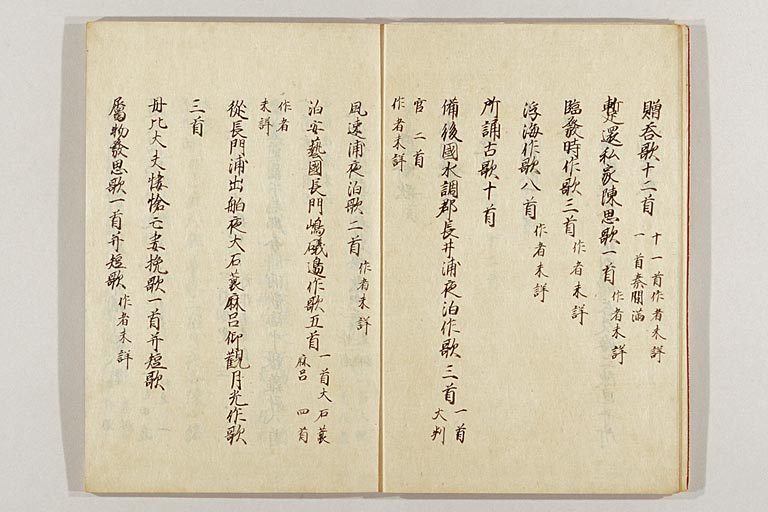 贈答歌十二首 十一首作者未詳
一首秦間満
蹔還私家陳思歌一首 作者未詳
臨發時作歌三首 作者未詳
浮海作歌八首 作者未詳
所誦古歌十首
備後國水調郡長井浦夜泊作歌三首 一首
大判
官 二首
作者未詳
風速浦夜泊歌二首 作者未詳
泊安藝國長門嶋礒邊作歌五首 一首大石蓑
麻呂 四首
作者
未詳
從長門浦出舶夜大石蓑麻呂仰觀月光作歌
三首
丹比大夫悽愴亡妻挽歌一首并短歌
属物發思歌一首并短歌 作者未詳